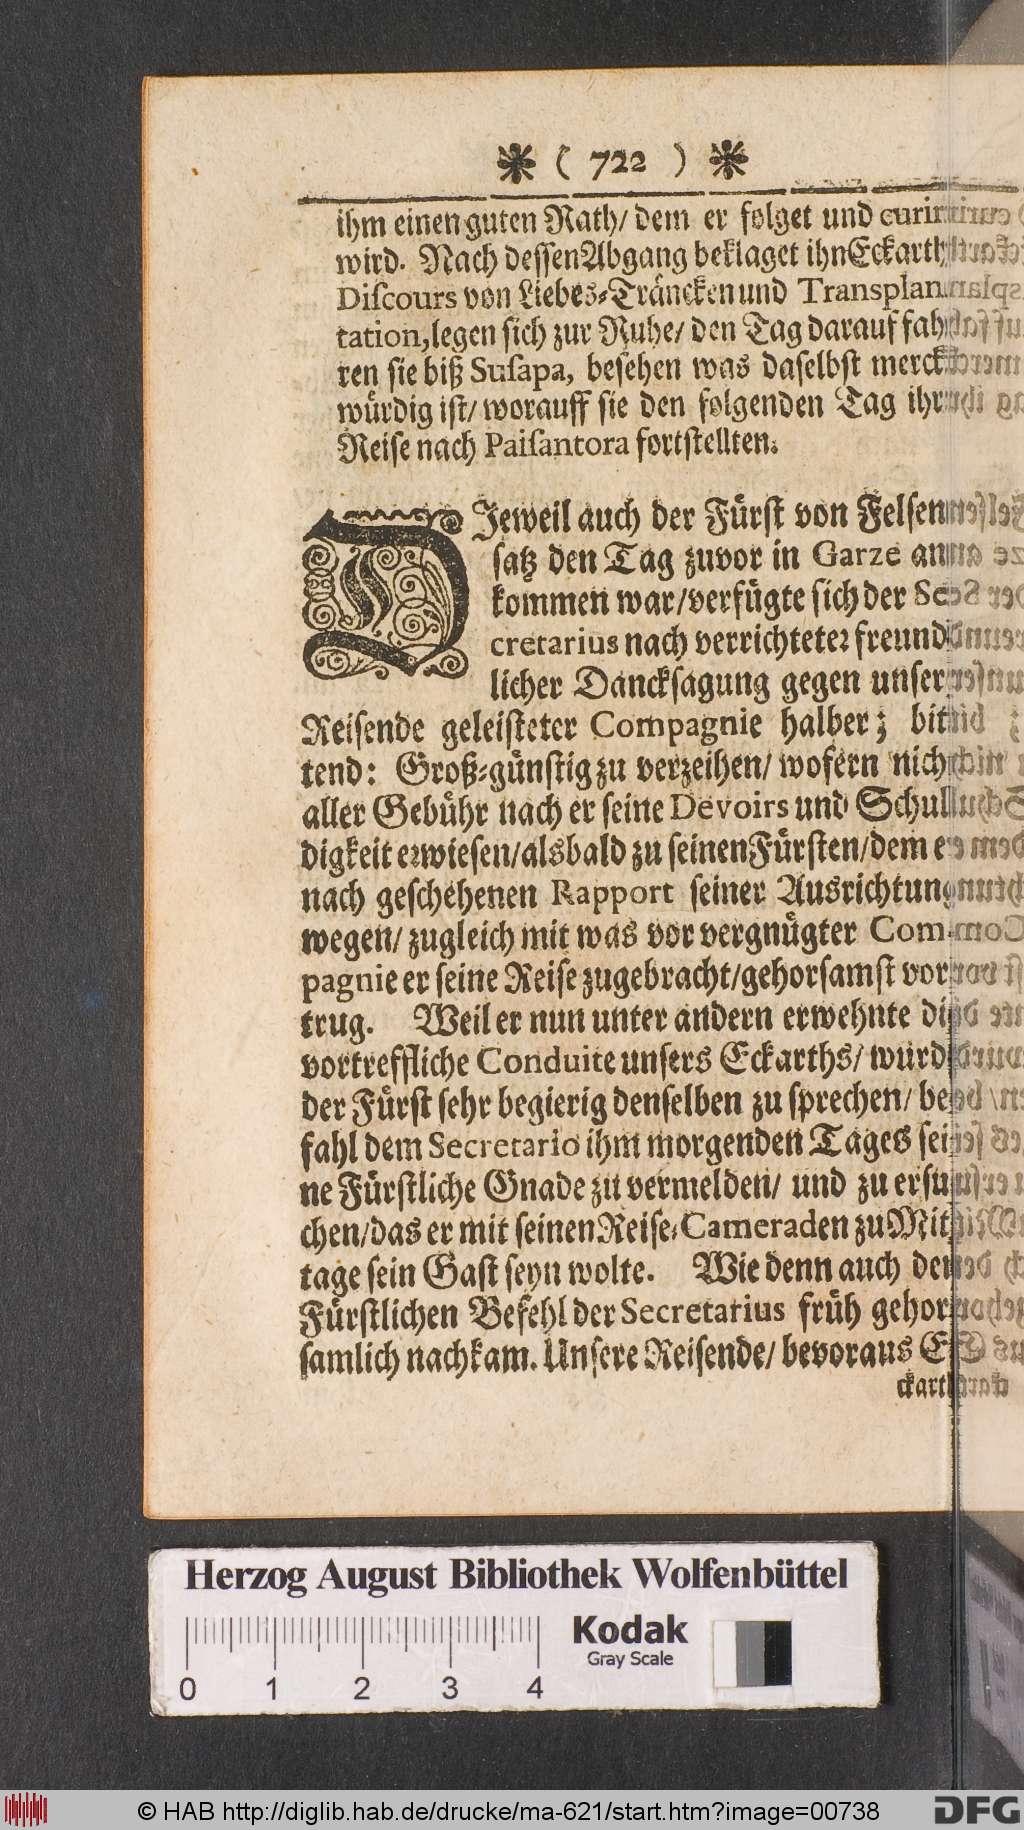 ❋ ( 722 ) ❋
ihm einen guten Rath/ dem er folget und curirt
wird. Nach dessen Abgang beklaget ihn Eckarth
Diſcours von Liebes-Träncken und Transplan-
tation, legen sich zur Ruhe/ den Tag darauf fah-
ren sie biß Suſapa, besehen was daselbst merck-
würdig ist/ worauff sie den folgenden Tag ihr
Reise nach Paiſantora fortstellten.
DJeweil auch der Fürst von Felsen-
satz den Tag zuvor in Garze an-
kommen war/ verfügte sich der Se-
cretarius nach verrichteter freund-
licher Dancksagung gegen unser
Reisende geleisteter Compagnie halber; bit-
tend: Groß-günstig zu verzeihen/ wofern nich
aller Gebühr nach er seine Devoirs und Schul-
digkeit erwiesen/ alsbald zu seinen Fürsten/ dem e
nach geschehenen Rapport seiner Ausrichtung
wegen/ zugleich mit was vor vergnügter Com-
pagnie er seine Reise zugebracht/ gehorsamst vor-
trug. Weil er nun unter andern erwehnte di
vortreffliche Conduite unsers Eckarths/ wurd
der Fürst sehr begierig denselben zu sprechen/ be-
fahl dem Secretario ihm morgenden Tages sei-
ne Fürstliche Gnade zu vermelden/ und zu ersu-
chen/ das er mit seinen Reise-Cameraden zu Mit-
tage sein Gast seyn wolte. Wie denn auch den
Fürstlichen Befehl der Secretarius früh gehor-
samlich nachkam. Unsere Reisende/ bevoraus E-
ckarth
Herzog August Bibliothek Wolfenbüttel
Kodak
Gray Scale
0 1 2 3 4
© HAB http://diglib.hab.de/drucke/ma-621/start.htm?image=00738
DFG